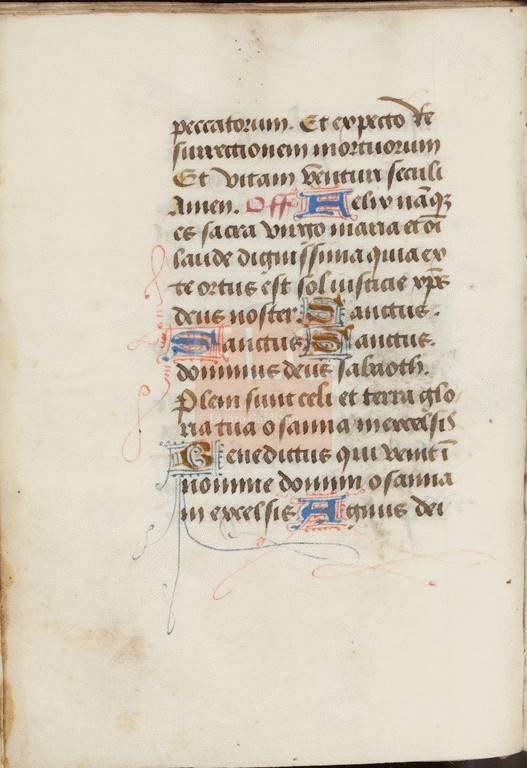 peccatorum. Et expecto re
surrectionem mortuorum
Et vitam venturi seculi
Amen. Off Felix nāqꝫ
es sacra virgo maria et oī
laude dignissima quia ex
te ortus est sol iusticie xp̄s
deus noster. Sanctus.
Sanctus Sanctus.
dominus deus sabaoth.
Pleni sunt celi et terra glo
ria tua osanna in excelsis
Benedictus qui venit ī
nomine domini osanna
in excelsis Agnus dei